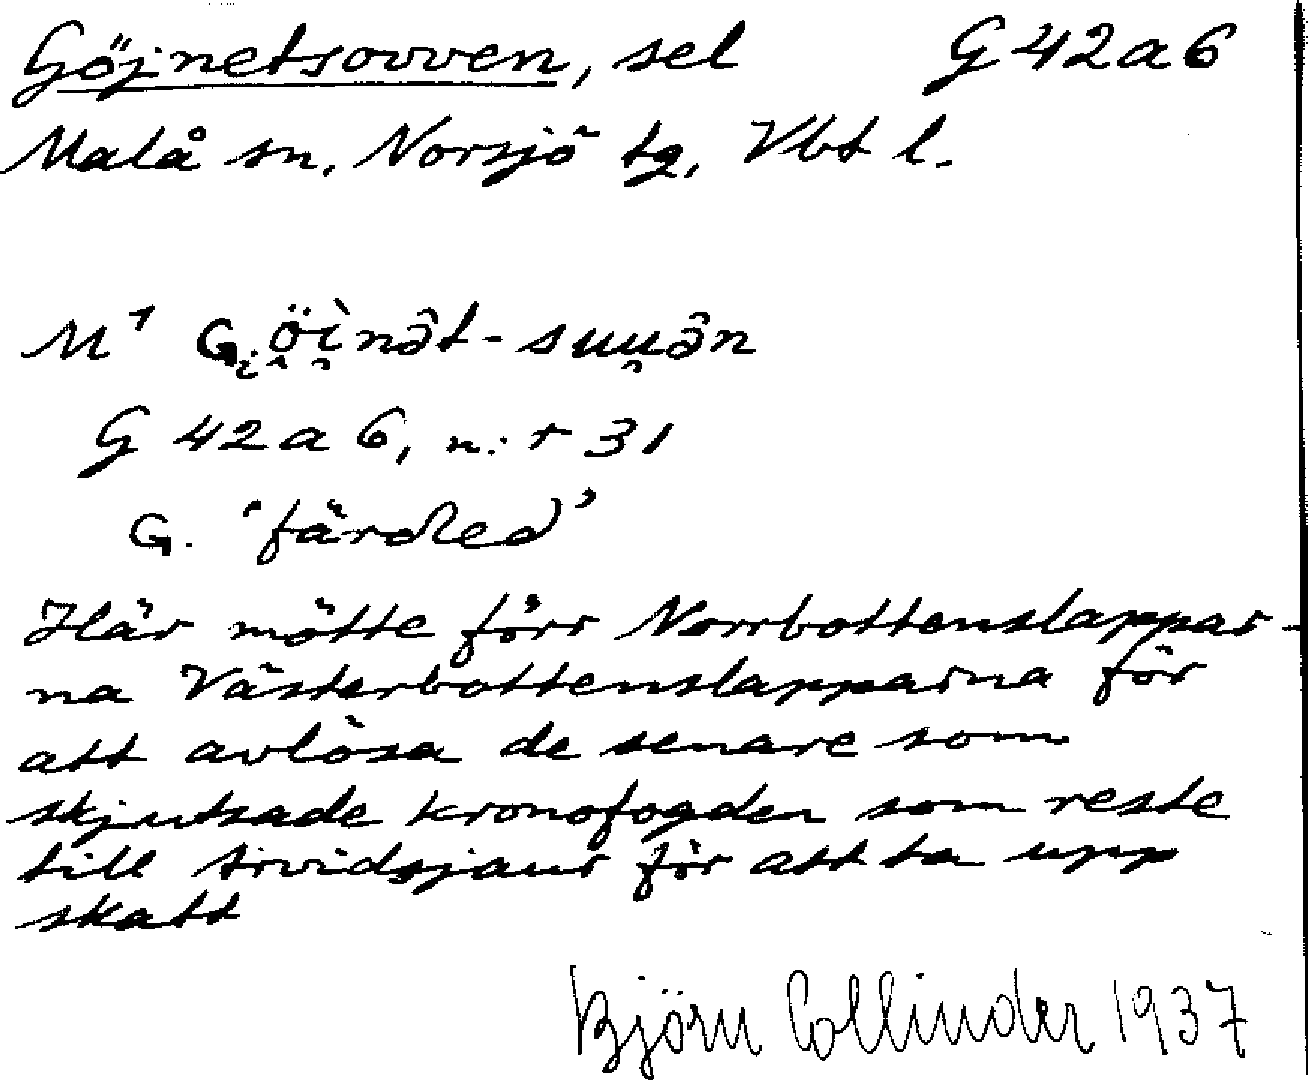 Göjnetsovven, sel G42a6
Malå sn, Norsjö tg, Vbt l.
M1 G öi̯nə̂t-suu̯ə̂n
G 42 a 6, n:r 31
G. 'färdled'
Här mötte förr Norrbottenslappar-
na Västerbottenslapparna för
att avlösa de senare som
skjutsade kronofogden som reste
till Arvidsjaur för att ta upp
skatt
Björn Collinder 1937